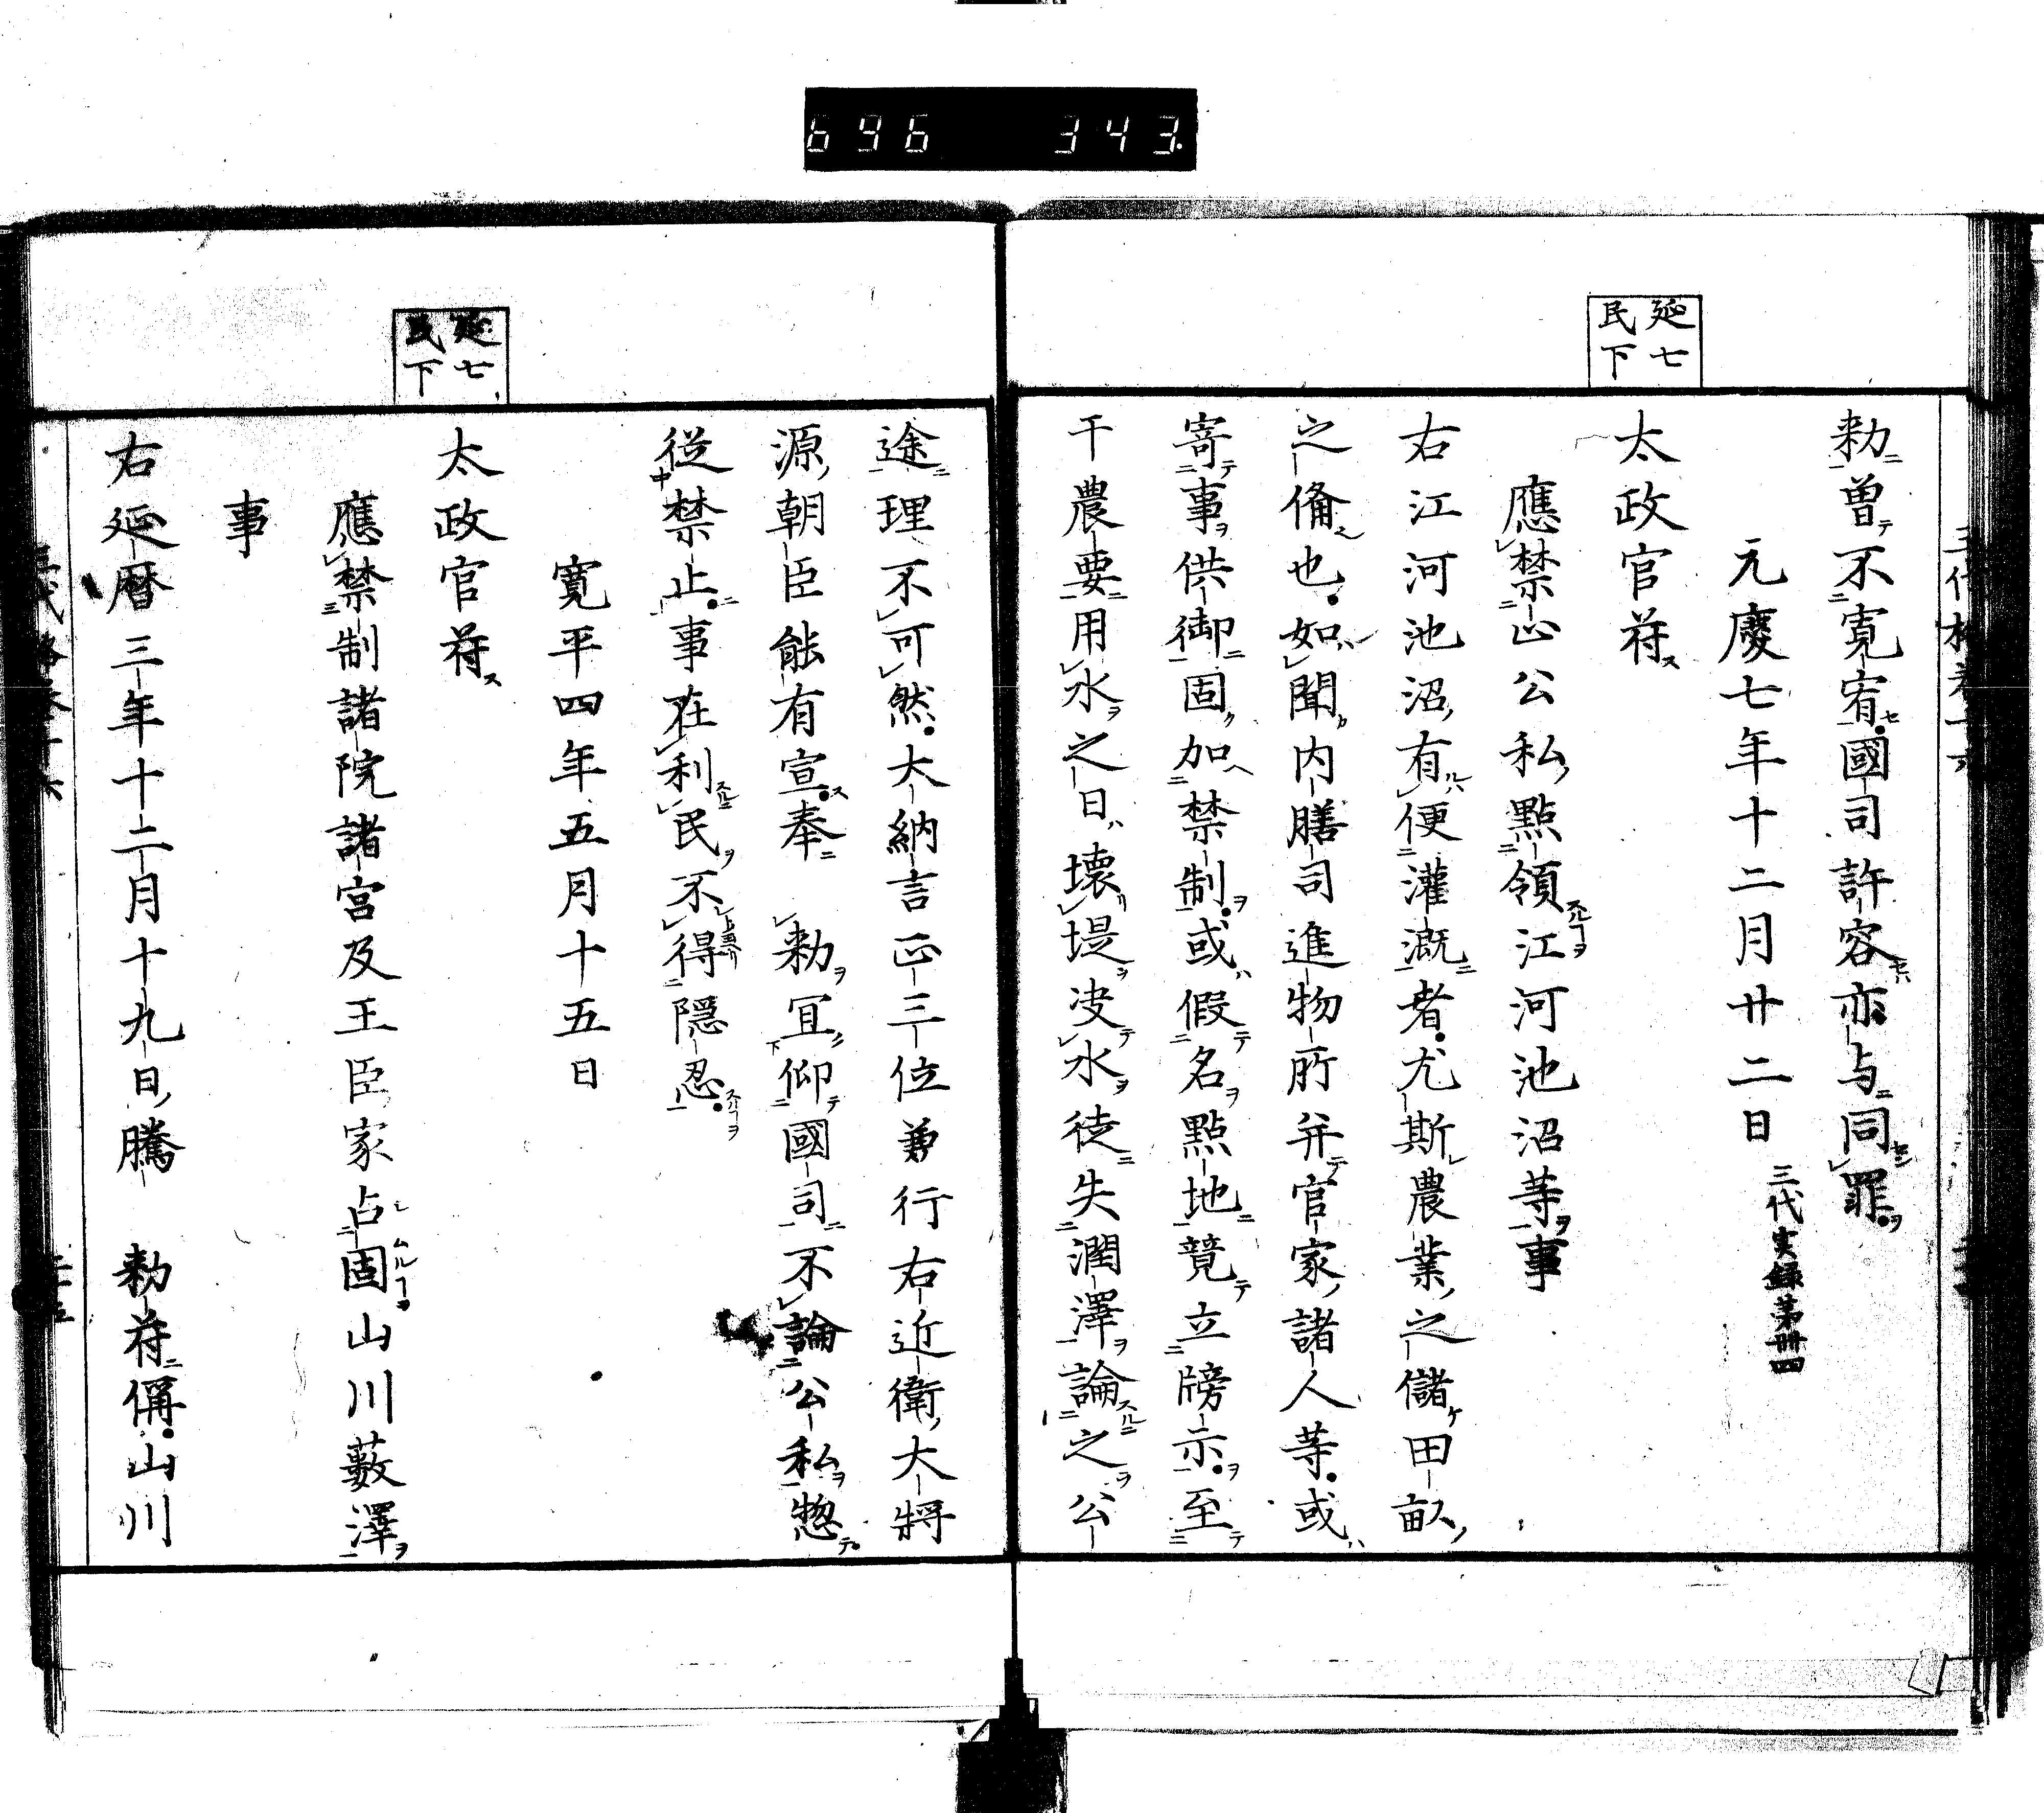 696 343.
延七
民下
勅曽不寛宥國司許容亦与同罪
元慶七年十二月廿二日 三代実録第卌四
太政官符
應禁止公私點領江河池沼等事
右江河池沼有便灌漑者尤斯農業之儲田畝
之俻也如聞内膳司進物所并官家諸人等或
寄事供御固加禁制或假名點地竟立牓示至
干農要用水之日壊堤决水徒失潤澤論之公
延七
民下
途理不可然大納言正三位兼行右近衛大将
源朝臣能有宣奉 勅冝仰國司不論公私惣
従禁止事在利民不得隠忍
寛平四年五月十五日
太政官符
應禁制諸院諸宮及王臣家占固山川藪澤
事
右延暦三年十二月十九日騰 勅符偁山川